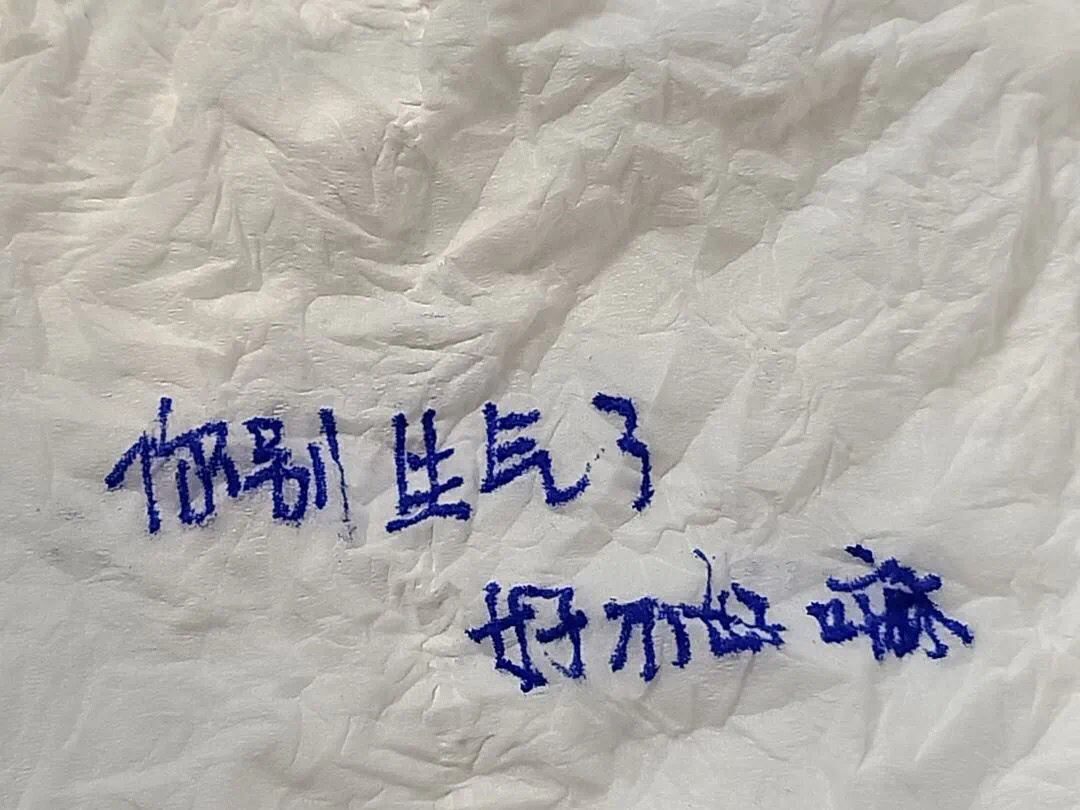 你别生气了
好不好嘛